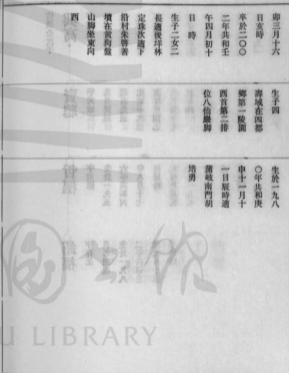 卯三月十六
日亥時
卒於二〇〇
二年共和壬
午四月初十
日 時
生子二女二
長適後垟林
定珠次適下
沿村朱啓善
墳在黃狗盤
山脚坐東向
西
生子四
壽域在四都
鄉第一陵園
西首第二排
位八伯嚴脚
生於一九八
〇年共和庚
申十一月十
一日辰時適
蒲岐南門胡
培勇
書館
U LIBRARY